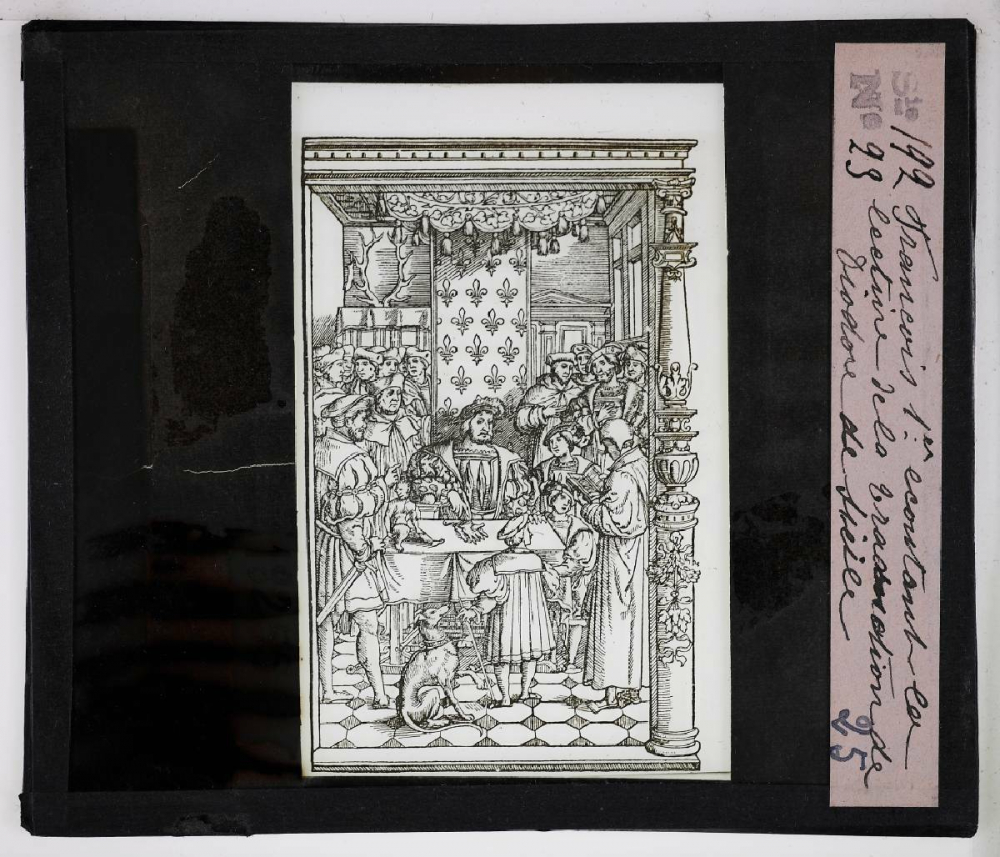 Ste 192 Francois 1er ecoutant la
No 23 lecture de la traduction de
Diodore de Sicile
25